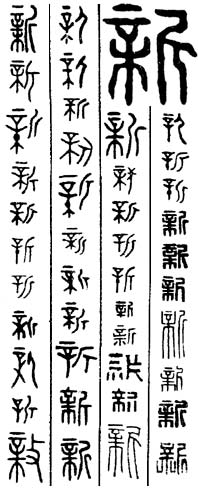 新
新新新新新新新新新新
新新新新新新新新新新
新新新新新新新新新新新
新新新新新新新新新新